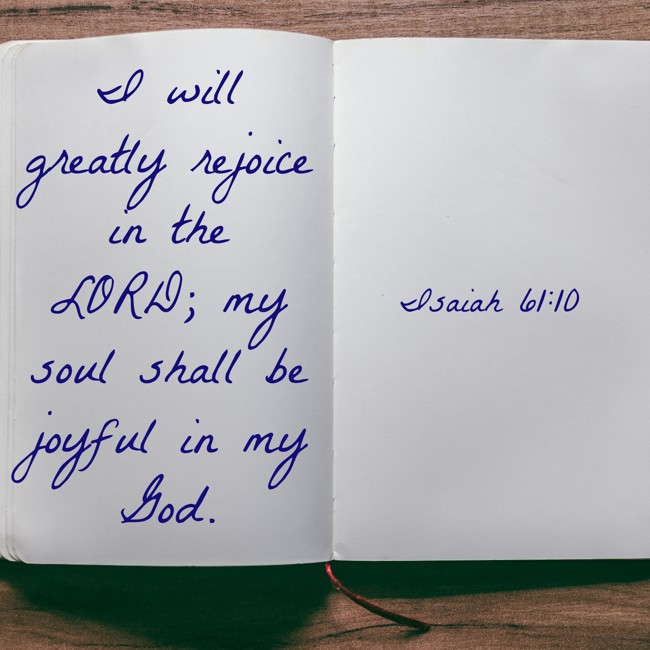 I will
greatly rejoice
in the
LORD; my
soul shall be
joyful in my
God.
Isaiah 61:10